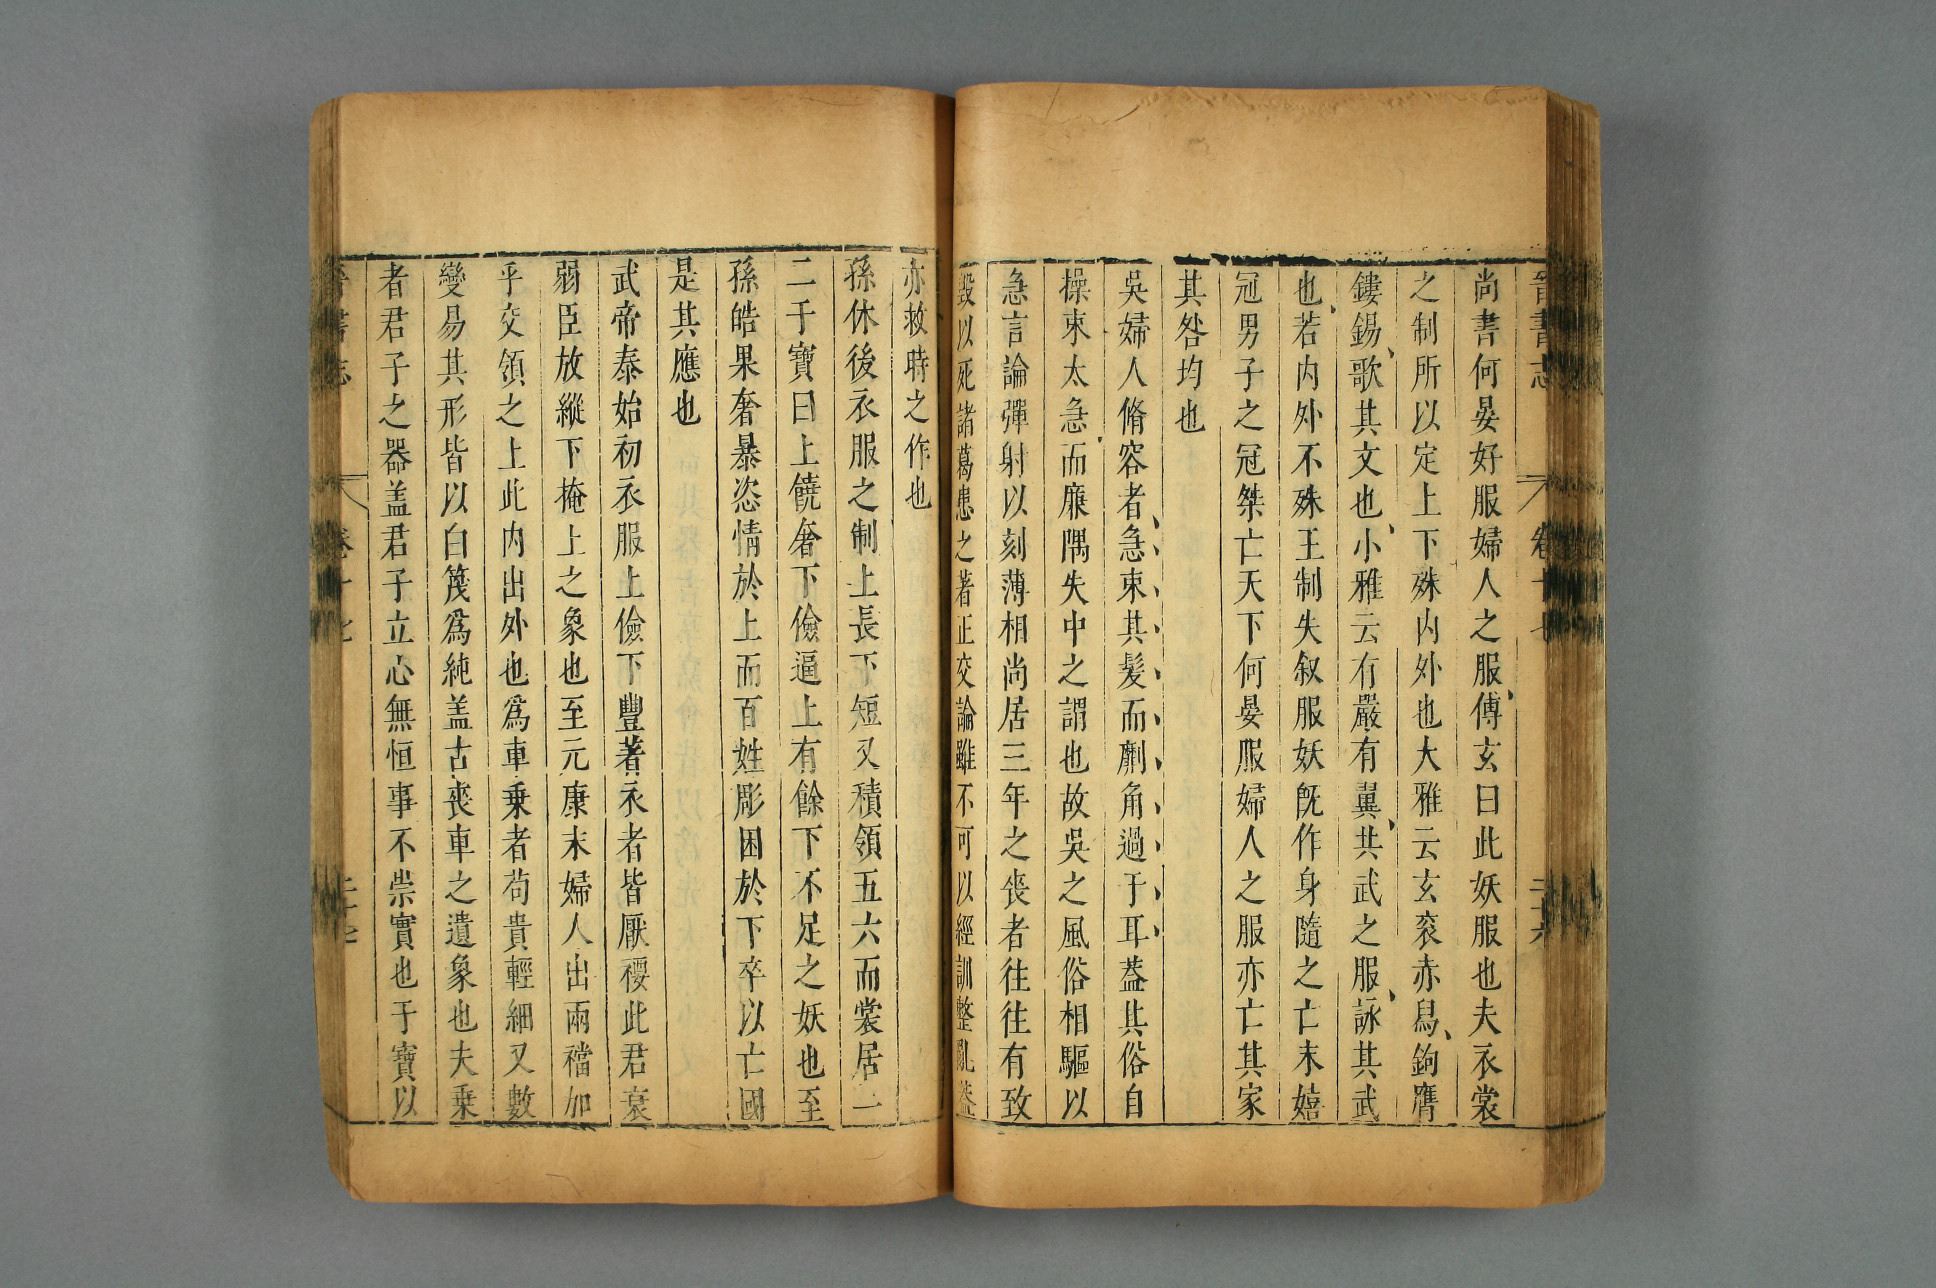 晉書志 卷十七 二十六
尚書何晏好服婦人之服傅玄曰此妖服也夫衣裳
之制所以定上下殊內外也大雅云玄衮赤舄鉤膺
鏤錫歌其文也小雅云有嚴有翼共武之服詠其武
也若內外不殊王制失叙服妖旣作身隨之亡末嬉
冠男子之冠桀亡天下何晏服婦人之服亦亡其家
其咎均也
吳婦人脩容者急束其髮而劘角過于耳葢其俗自
操束太急而廉隅失中之謂也故吳之風俗相驅以
急言論彈射以刻薄相尚居三年之喪者往往有致
毀以死諸葛患之著正交論雖不可以經訓整亂葢
亦救時之作也
孫休後衣服之制上長下短又積領五六而裳居一
二干寶曰上饒奢下儉逼上有餘下不足之妖也至
孫皓果奢暴恣情於上而百姓彫困於下卒以亡國
是其應也
武帝泰始初衣服上儉下豐著衣者皆厭䙅此君衰
弱臣放縱下掩上之象也至元康末婦人出兩襠加
乎交領之上此內出外也爲車乗者苟貴輕細又數
變易其形皆以白篾爲純盖古喪車之遺象也夫乗
者君子之器盖君子立心無恒事不崇實也干寶以
晉書志 卷十七 二十七